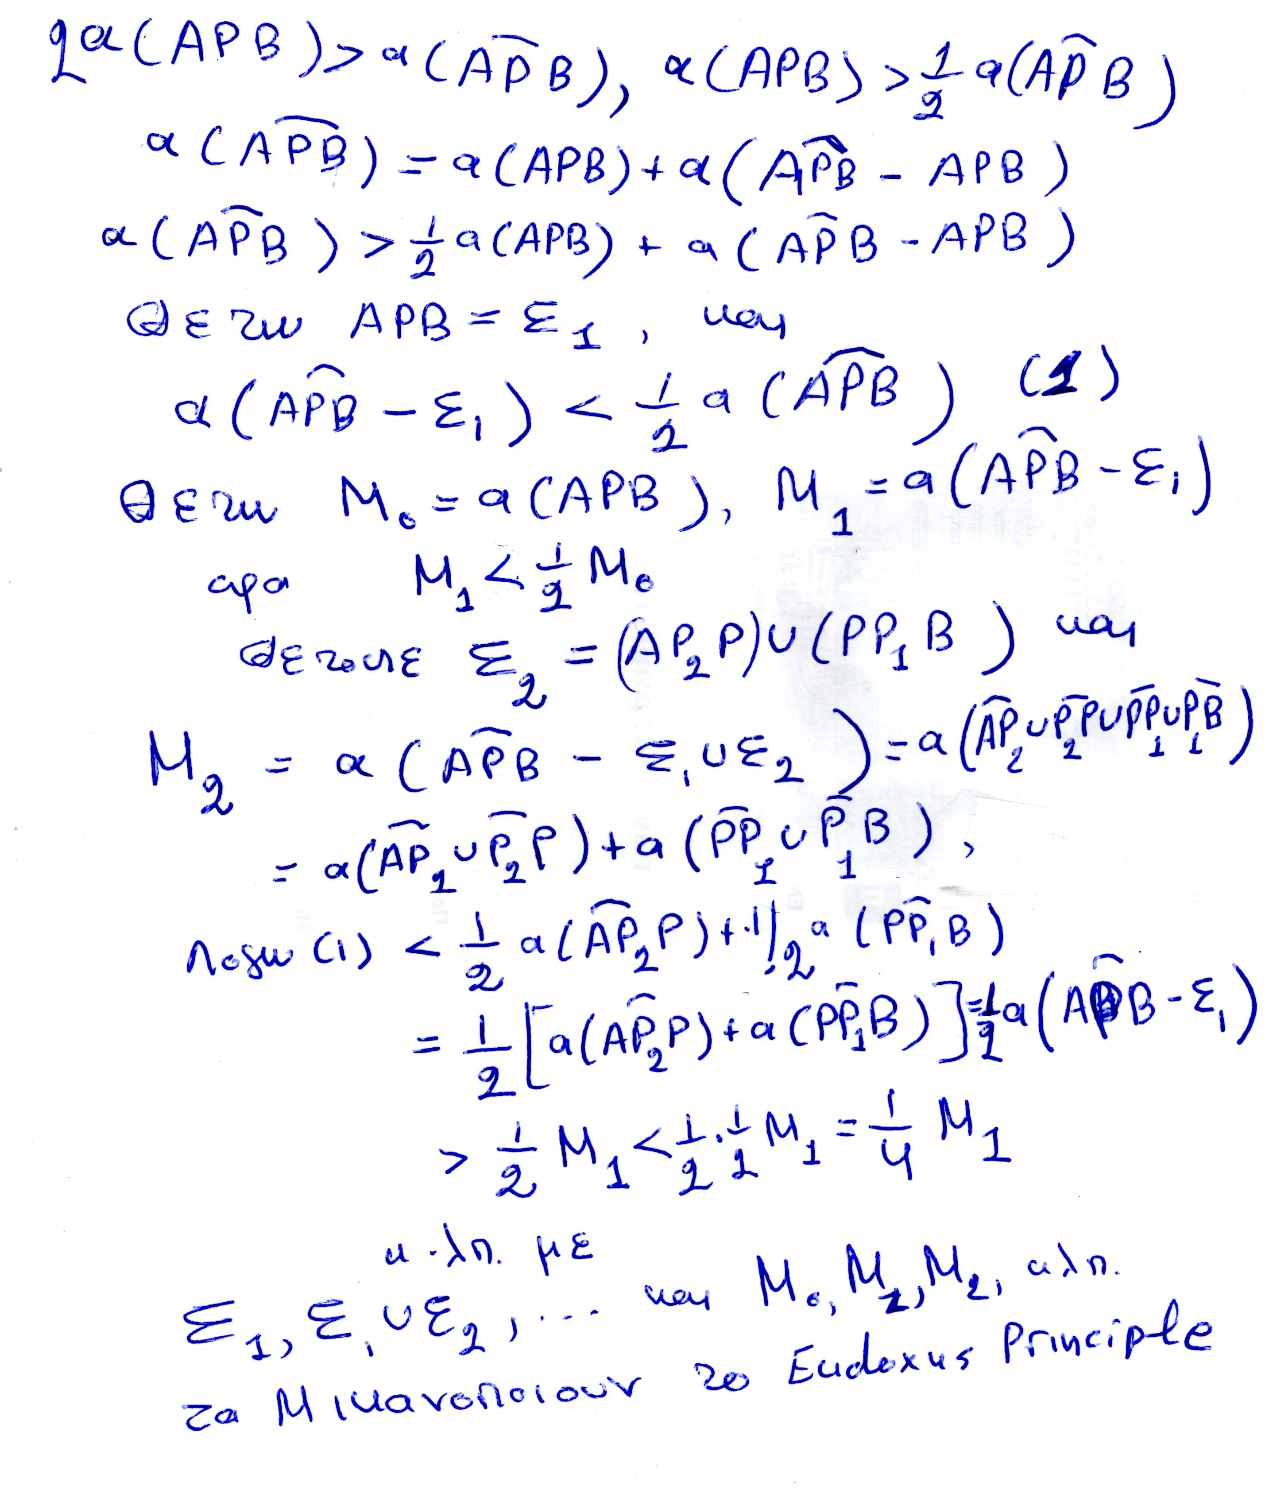 2α(APB)>α(A͡PB), α(APB)>1/2 α(A͡PB)
α(A͡PB)=α(APB)+α(A͡PB - APB)
α(A͡PB)>1/2 α(APB) + α(A͡PB - APB)
Θετω APB = Ε1, και
α(A͡PB - Ε1) < 1/2 α(A͡PB) (1)
Θετω M0=α(APB), M1=α(A͡PB - Ε1)
αρα M1 < 1/2 M0
Θετουμε Ε2 = (AP2P)∪(PP1B) και
M2 = α(A͡PB - Ε1∪Ε2)=α(A͡P2∪P͡2P∪P͡P1∪P͡1B)
= α(A͡P2∪P͡2P)+α(P͡P1∪P͡1B),
λογω (1) < 1/2 α(A͡P2P)+1/2 α(P͡P1B)
= 1/2 [α(A͡P2P)+α(P͡P1B)]=1/2 α(A͡PB - Ε1)
> 1/2 M1 < 1/2 · 1/2 M1 = 1/4 M1
κ.λπ. με
Ε1, Ε1∪Ε2, ... και M0, M1, M2, κλπ.
τα M ικανοποιουν το Eudoxus Principle